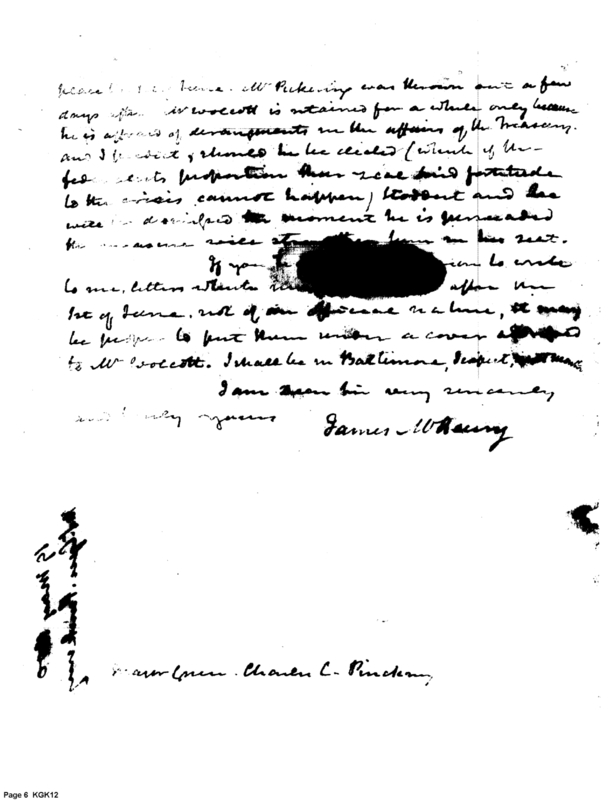 place Mr Pickering was thrown out a few
days after Mr Wolcott is retained for a while only because
he is afraid of derangements in the affairs of the Treasury.
and I predict, should he be elected (which if the
proportion their zeal and fortitude
to the crisis cannot happen) Stoddert and Lee
will be the moment he is persuaded
the measure will him in his seat.
If you to write
to me, letters which after the
1st of June, not of an official nature, it may
be proper to put them under a cover
to Mr Wolcott. I shall be in Baltimore, I expect,
I am dear Sir very sincerely
and truly yours
James McHenry
Major Genl. Charles C. Pinckney
15 May
Page 6 KGK12